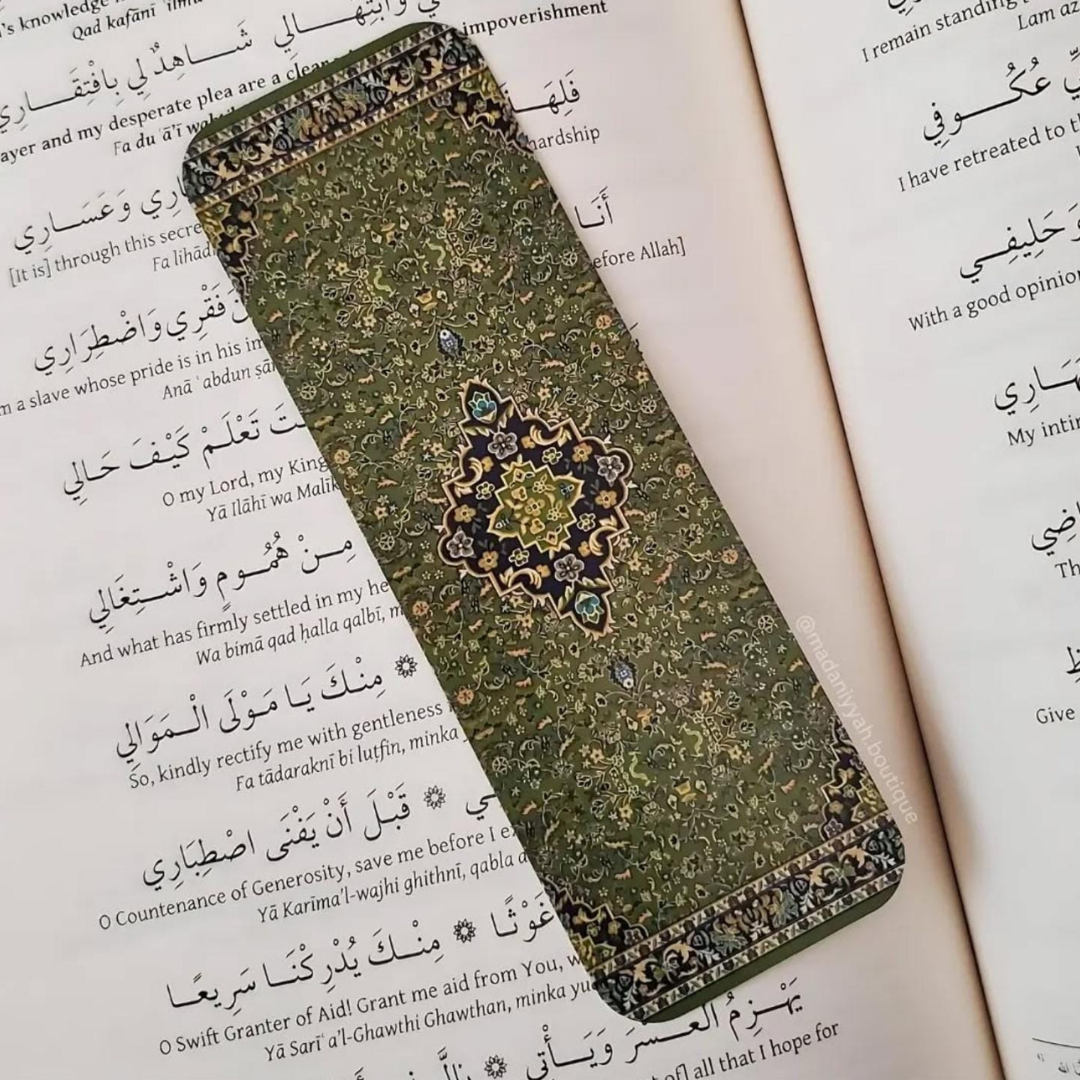 's knowledge
Qad kafānī ʿilmu
وَابْتِهَـــالِي شَـــاهِدٌ لِي بِافْتِقَـــارِي
ayer and my desperate plea are a clear impoverishment
Fa duʿāʾī wa
فَلِهَـ
ارِي وَعَسَـــارِي
[It is] through this secre hardship
Fa lihād
أَنَـا
فَقْرِي وَاضْطِرَارِي
m a slave whose pride is in his im efore Allah]
Anā ʿabdun ṣā
تَعْلَـمْ كَيْـفَ حَـالِي
O my Lord, my King
Yā Ilāhī wa Malīk
مِـنْ هُمُـومٍ وَاشْـتِغَالِي
And what has firmly settled in my he
Wa bimā qad ḥalla qalbī, m
مِنْـكَ يَـا مَـوْلَى الْـمَوَالِي
So, kindly rectify me with gentleness
Fa tādaraknī bi luṭfin, minka
ـي قَبْـلَ أَنْ يَفْنَى اصْطِبَارِي
O Countenance of Generosity, save me before I e
Yā Karīma'l-wajhi ghithnī, qabla a
غَوْثًـا مِنْـكَ يُدْرِكْنَـا سَرِيعًـا
O Swift Granter of Aid! Grant me aid from You, w
Yā Sarīʿ a'l-Ghawthi Ghawthan, minka yu
يَهْـزِمُ العُـسْرَ وَيَـأْتِي
of] all that I hope for
I remain standing
Lam az
عُكُـــوفِي
I have retreated to th
وَحَلِيفِـــي
With a good opinion
هَـارِي
My intim
اضِي
Th
Give
@madaniyyah.boutique